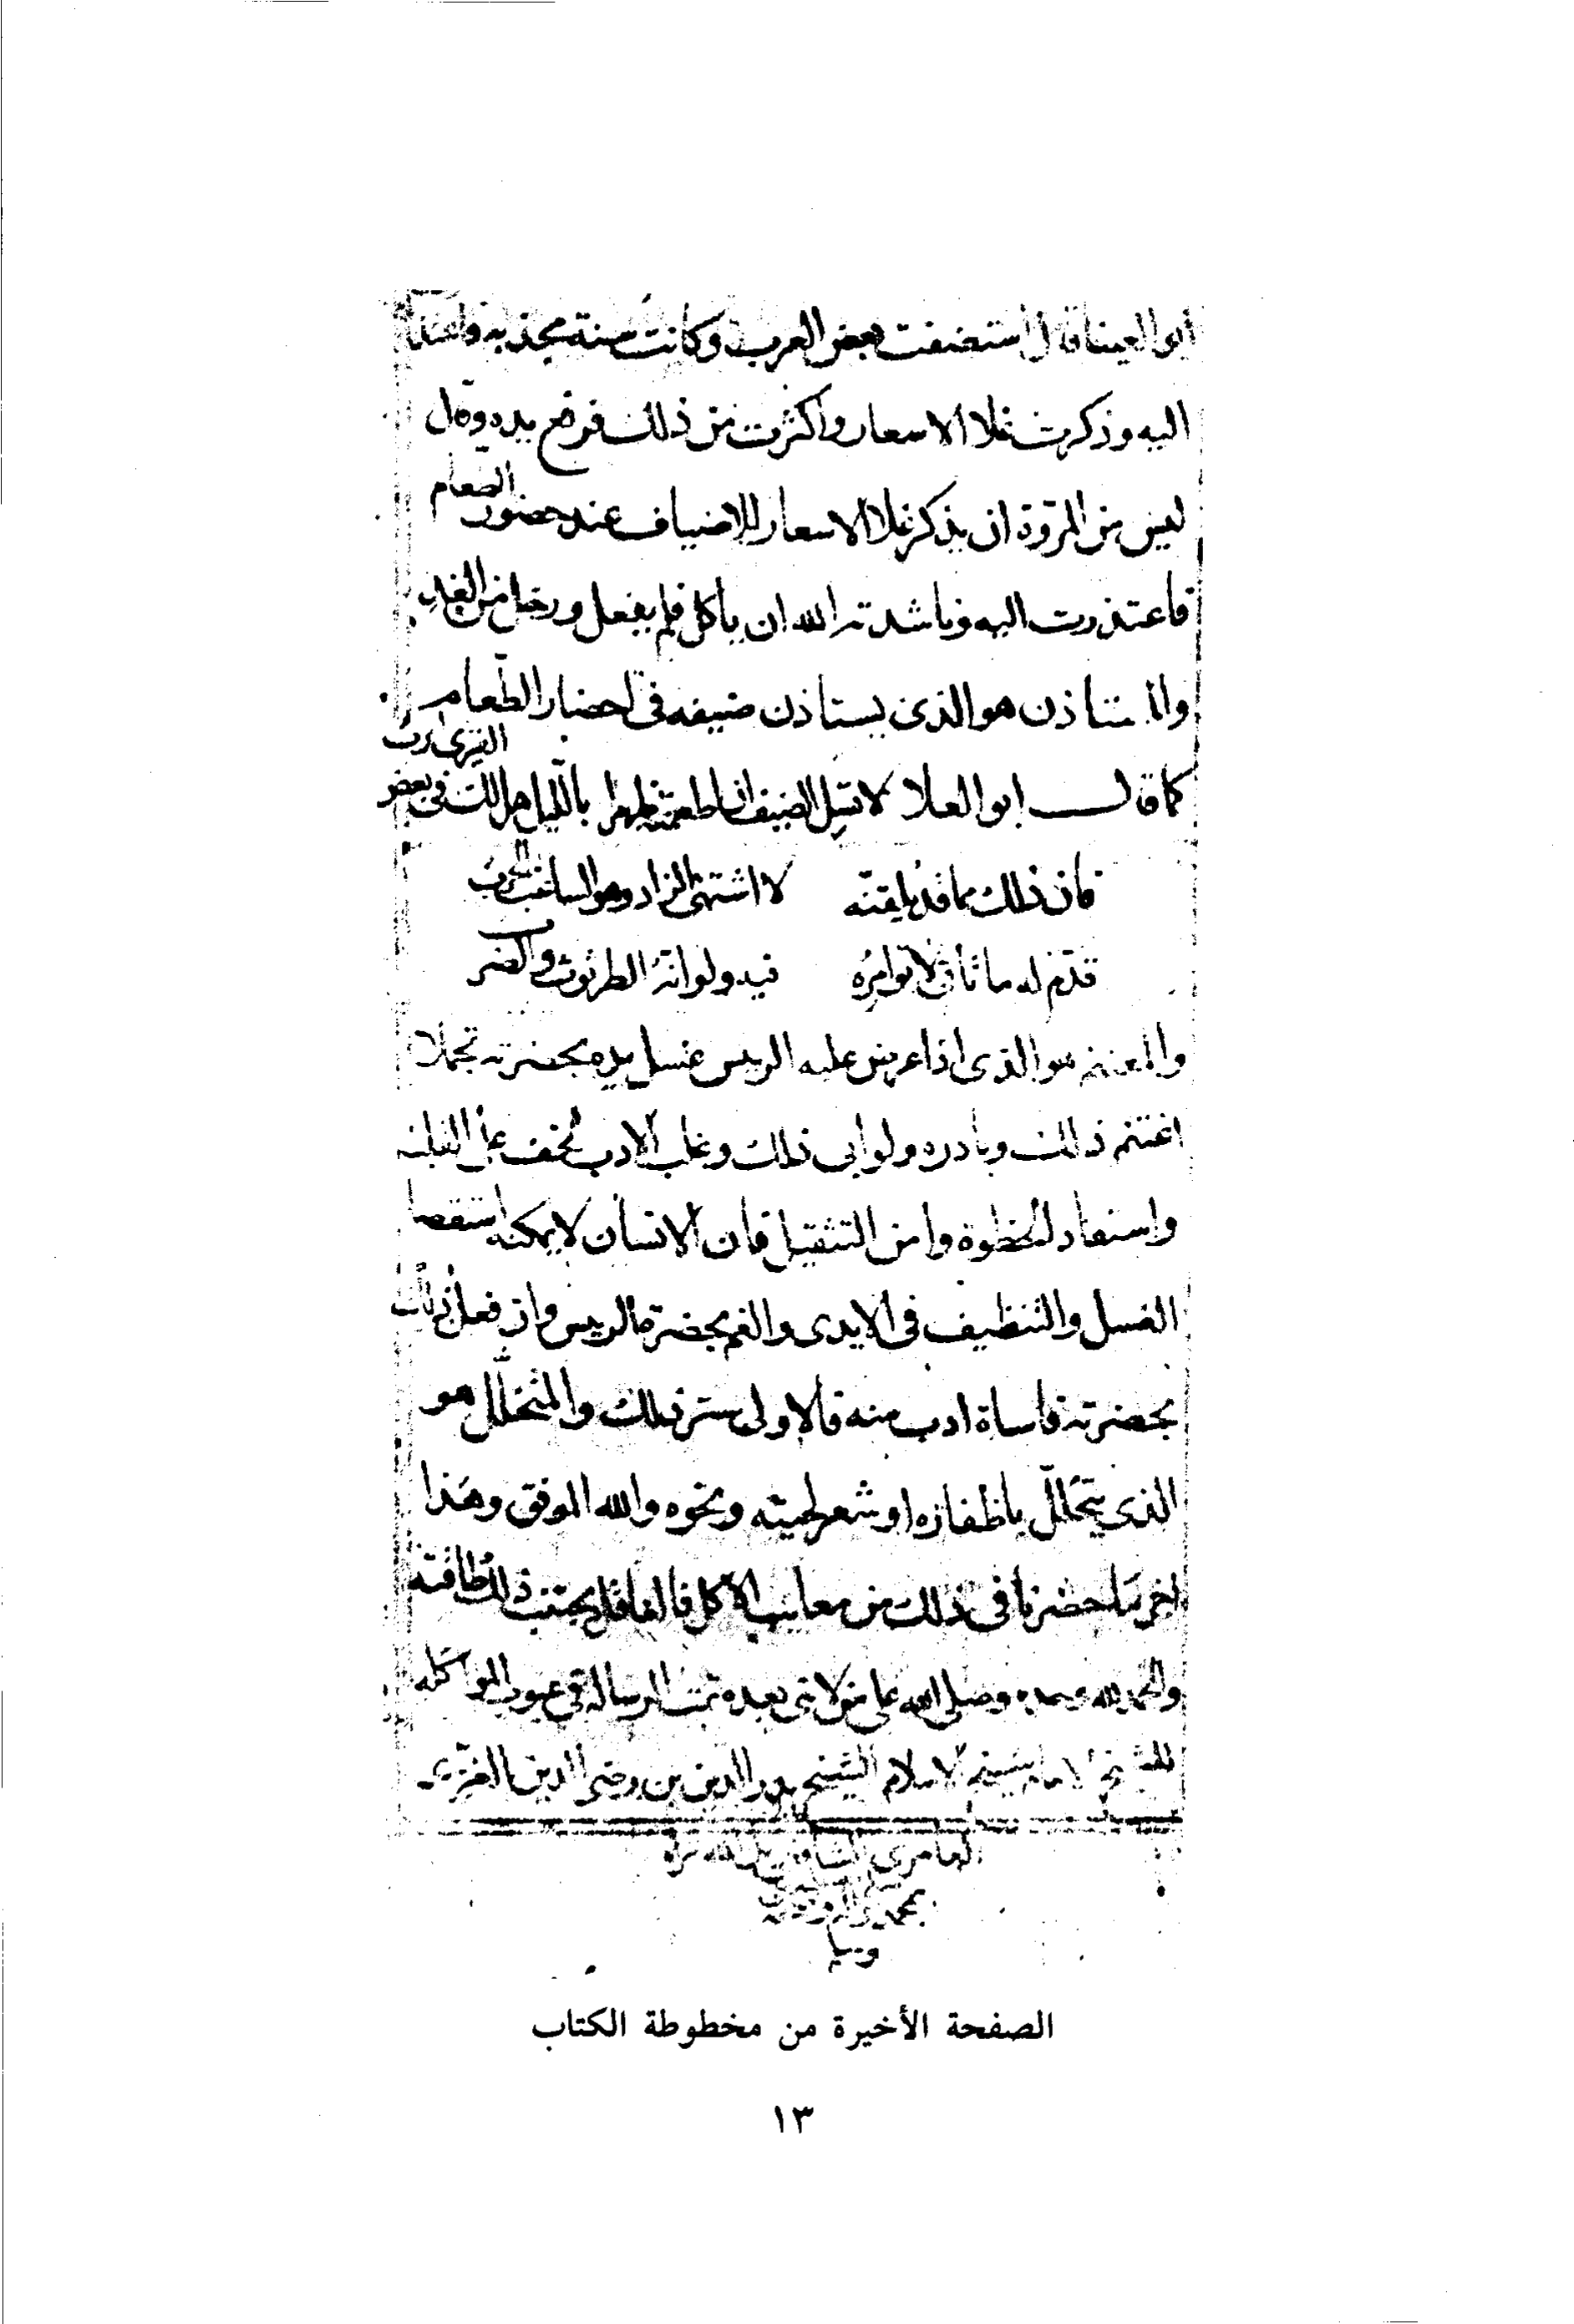 ابو العينا قال استضفت بعض العرب وكانت سنة مجدبة
اليه وذكرت غلا الاسعار واكثرت من ذلك فرفع يده وقال
ليس من المروة ان يذكر غلا الاسعار للاضياف عند حضور الطعام
فاعتذرت اليه وناشدته الله ان ياكل فلم يفعل ورحل من الغد
والمستاذن هو الذى يستاذن ضيفه فى احضار الطعام
كما قال ابو العلا لا تسل الضيف ان اطعمته ظهرا بالليل هل لك فى بعض القرى ارب
فان ذلك مما قد يلقنه لا اشتهى الزاد وهو الساغب الحرب
قدم له ما تأتى لا توامره فيه ولو انه الطرثوث والصرب
والمغتنم هو الذى اذا عرض عليه الريس غسل يده بحضرته تجملا
اغتنم ذلك وبادره ولو ابى ذلك وغلب الادب لخف على
واستفاد الحظوة وامن التثقيل فان الانسان لا يمكنه استقصا
الغسل والتنظيف فى الايدى والفم بحضرة الريس وان فعل ذلك
بحضرته فاساة ادب منه فالاولى ستر ذلك والمتخلل هو
الذى يتخلل باظفاره او شعر لحيته ونحوه والله الموفق وهذا
اخر ما حضرنا فى ذلك من معايب الاكل فالعاقل يجتنب ذلك طاقته
والحمد لله وحده وصلى الله على من لا نبى بعده تمت الرسالة فى عيوب المواكله
للشيخ الامام شيخ الاسلام الشيخ بدر الدين بن رضى الدين الغزى
العامرى الشافعى بل الله ثراه
بمحمد واله وصحبه
وسلم
الصفحة الأخيرة من مخطوطة الكتاب
١٣